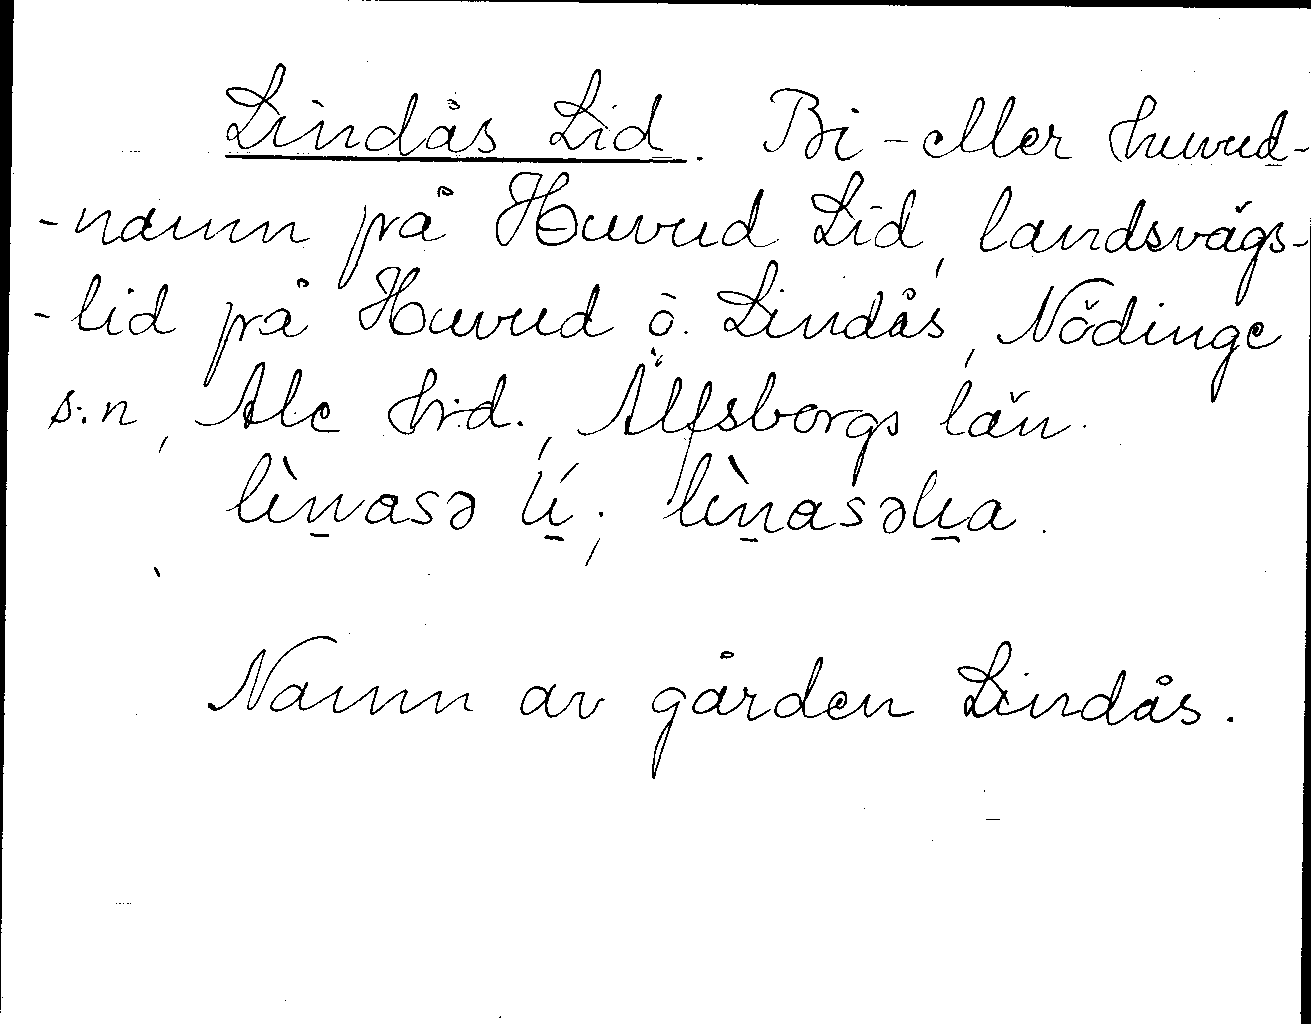 Lindås Lid. Bi- eller huvud-
-namn på Huvud Lid, landsvägs-
-lid på Huvud ö. Lindås, Nödinge
s:n, Ale hrd., Älfsborgs län.
lìn̠asə lí̠; lìn̠asəli̠a.
Namn av gården Lindås.